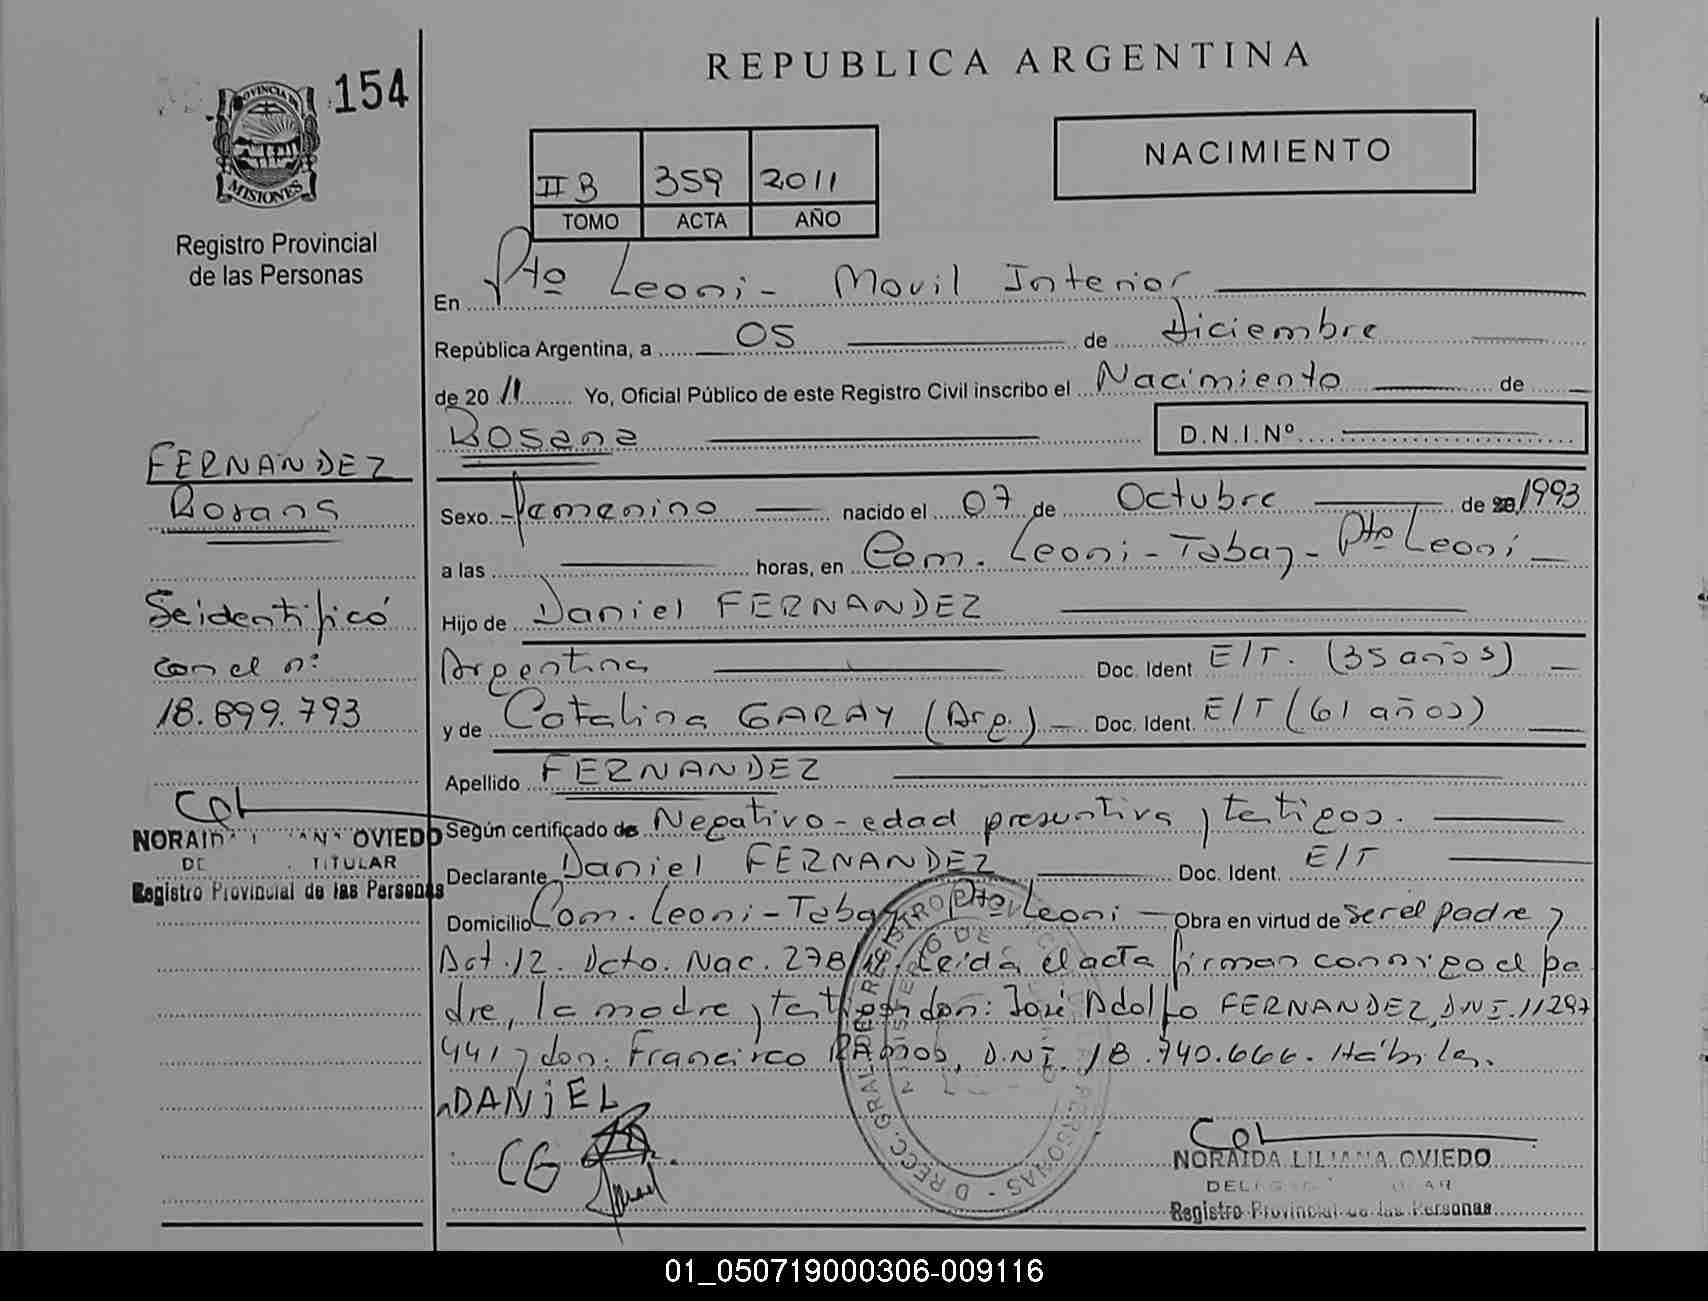 REPUBLICA ARGENTINA
154
PROVINCIA DE
MISIONES
Registro Provincial
de las Personas
NACIMIENTO
II B 359 2011
TOMO ACTA AÑO
En Pto Leoni - Movil Interior
República Argentina, a 05 de Diciembre
de 20 11 Yo, Oficial Público de este Registro Civil inscribo el Nacimiento de
Rosana D.N.I.Nº
FERNANDEZ
Rosana
Sexo Femenino nacido el 07 de Octubre de 1993
a las horas, en Com. Leoni - Tabay - Pto Leoni
Hijo de Daniel FERNANDEZ
Argentina Doc. Ident E/T. (35 años)
y de Catalina GARAY (Arg.) - Doc. Ident. E/T (61 años)
Se identificó
con el nº
18.899.793
Apellido FERNANDEZ
Según certificado de Negativo - edad presuntiva y testigos.
Declarante Daniel FERNANDEZ Doc. Ident. E/T
Domicilio Com. Leoni - Tabay Pto Leoni - Obra en virtud de ser el padre y
Art. 12. Dcto. Nac. 278/ Leida el acta firman conmigo el pa
dre, la madre y testigos don: José Adolfo FERNANDEZ, DNI. 11297
441 y don: Francisco RAmos, D.NI. 18.740.666. Hábiles.
DANiEL
CG
NORAIDA OVIEDO
TITULAR
Registro Provincial de las Personas
NORAIDA LILIANA OVIEDO
Registro Provincial de las Personas
01_050719000306-009116